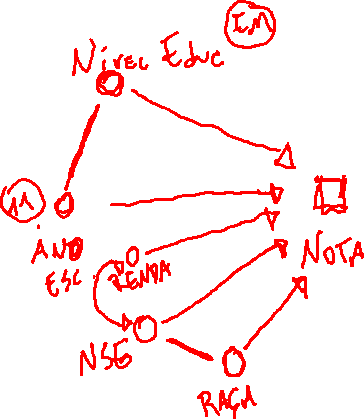 EM
Nivel Educ
11
ANO
ESC
RENDA
NOTA
NSE
RAÇA